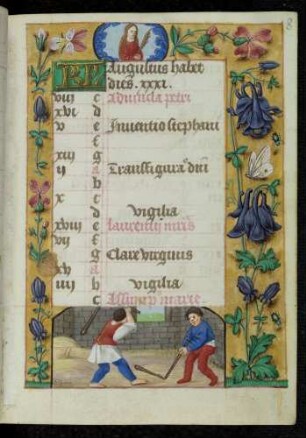 8
KL Augustus habet
dies. xxxi.
viii c Ad vincula petri
xvi d
v e Inventio stephani
f
xiii g
ii a Transfigura' dñi
b
x c
d vigilia
xviii e laurentii mr̄is
vii f
g Clare virginis
xv a
iiii b vigilia
c Assump' marie.